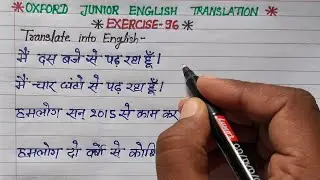 * OXFORD JUNIOR ENGLISH TRANSLATION
* EXERCISE-96 *
Translate into English-
मैं दस बजे से पढ़ रहा हूँ।
मैं चार घंटों से पढ़ रहा हूँ।
हमलोग सन 2015 से काम कर
हमलोग दो वर्षों से